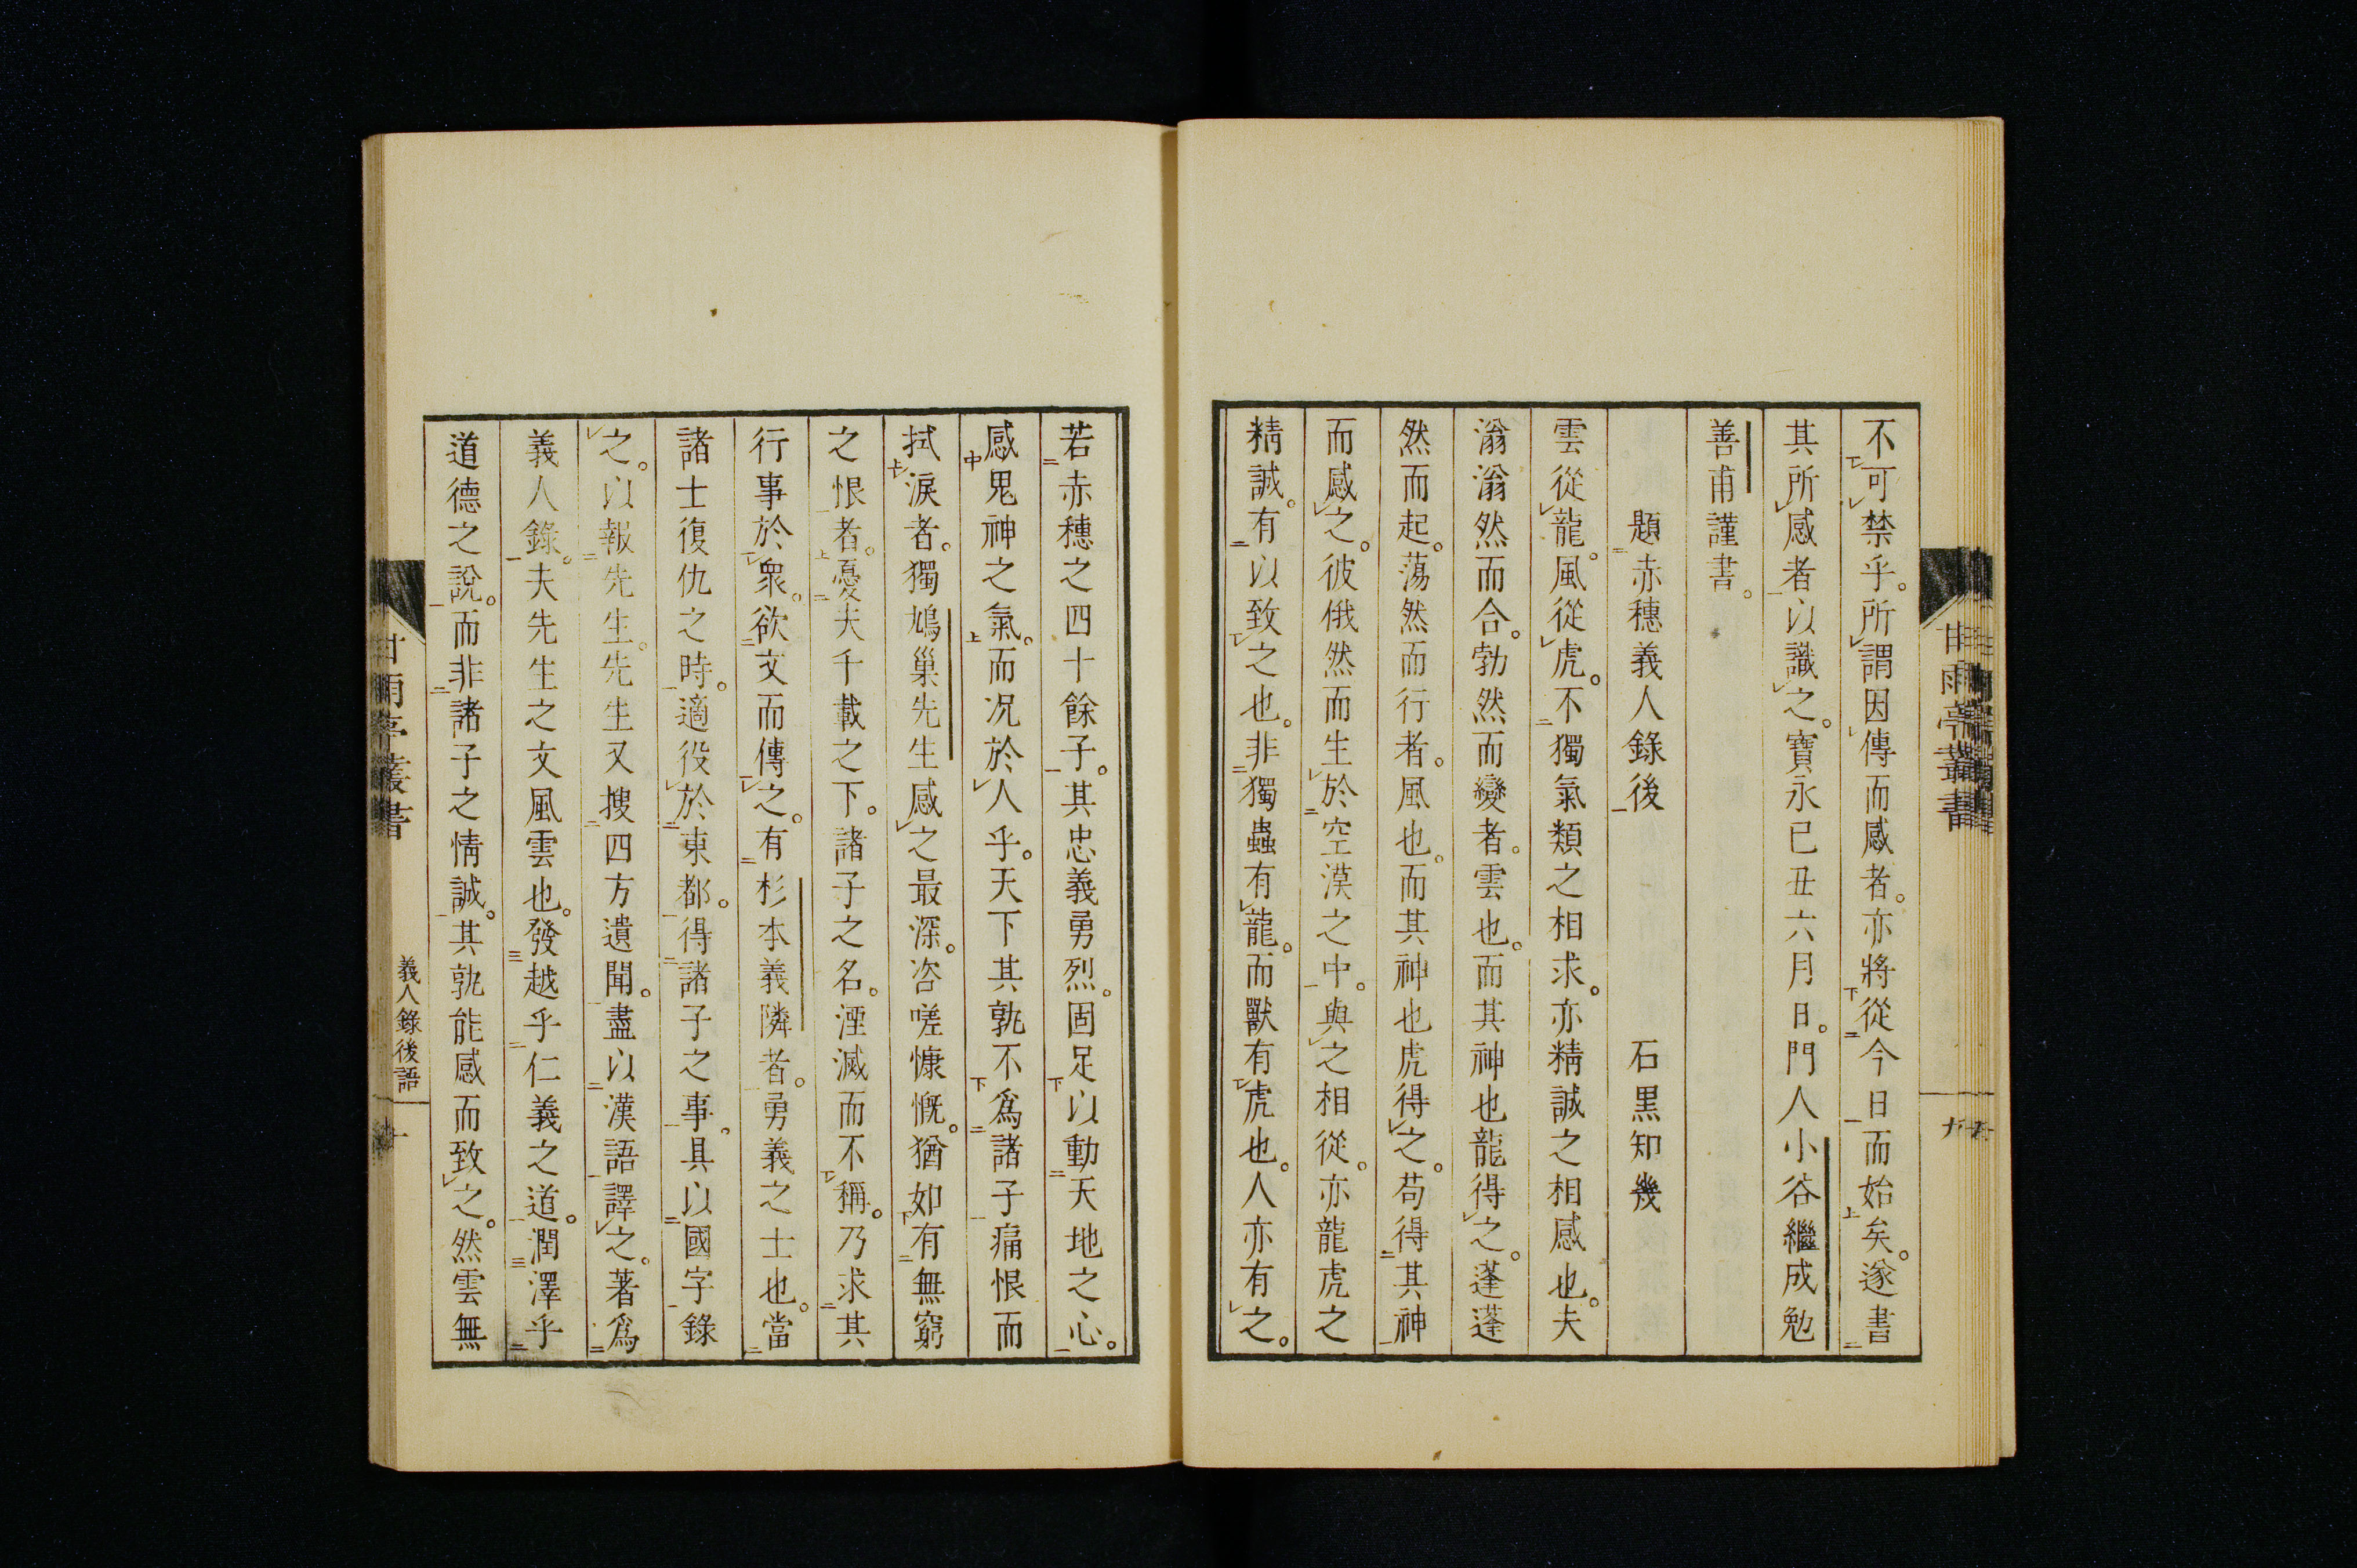 不可禁乎。所謂因傳而感者。亦將從今日而始矣。遂書
其所感者以識之。寶永己丑六月日。門人小谷繼成勉
善甫謹書。
題赤穗義人錄後 石黒知幾
雲從龍。風從虎。不獨氣類之相求。亦精誠之相感也。夫
滃滃然而合。勃然而變者。雲也。而其神也龍得之。蓬蓬
然而起。蕩然而行者。風也。而其神也虎得之。苟得其神
而感之。彼俄然而生於空漠之中。與之相從。亦龍虎之
精誠。有以致之也。非獨蟲有龍。而獸有虎也。人亦有之。
甘雨亭叢書
九
若赤穗之四十餘子。其忠義勇烈。固足以動天地之心。
感鬼神之氣。而况於人乎。天下其孰不爲諸子痛恨而
拭淚者。獨鳩巢先生感之最深。咨嗟慷慨。猶如有無窮
之恨者。憂夫千載之下。諸子之名。湮滅而不稱。乃求其
行事於衆。欲文而傳之。有杉本義隣者。勇義之士也。當
諸士復仇之時。適役於東都。得諸子之事。具以國字錄
之。以報先生。先生又搜四方遺聞。盡以漢語譯之。著爲
義人錄。夫先生之文風雲也。發越乎仁義之道。潤澤乎
道德之說。而非諸子之情誠。其孰能感而致之。然雲無
甘雨亭叢書
義人錄後語